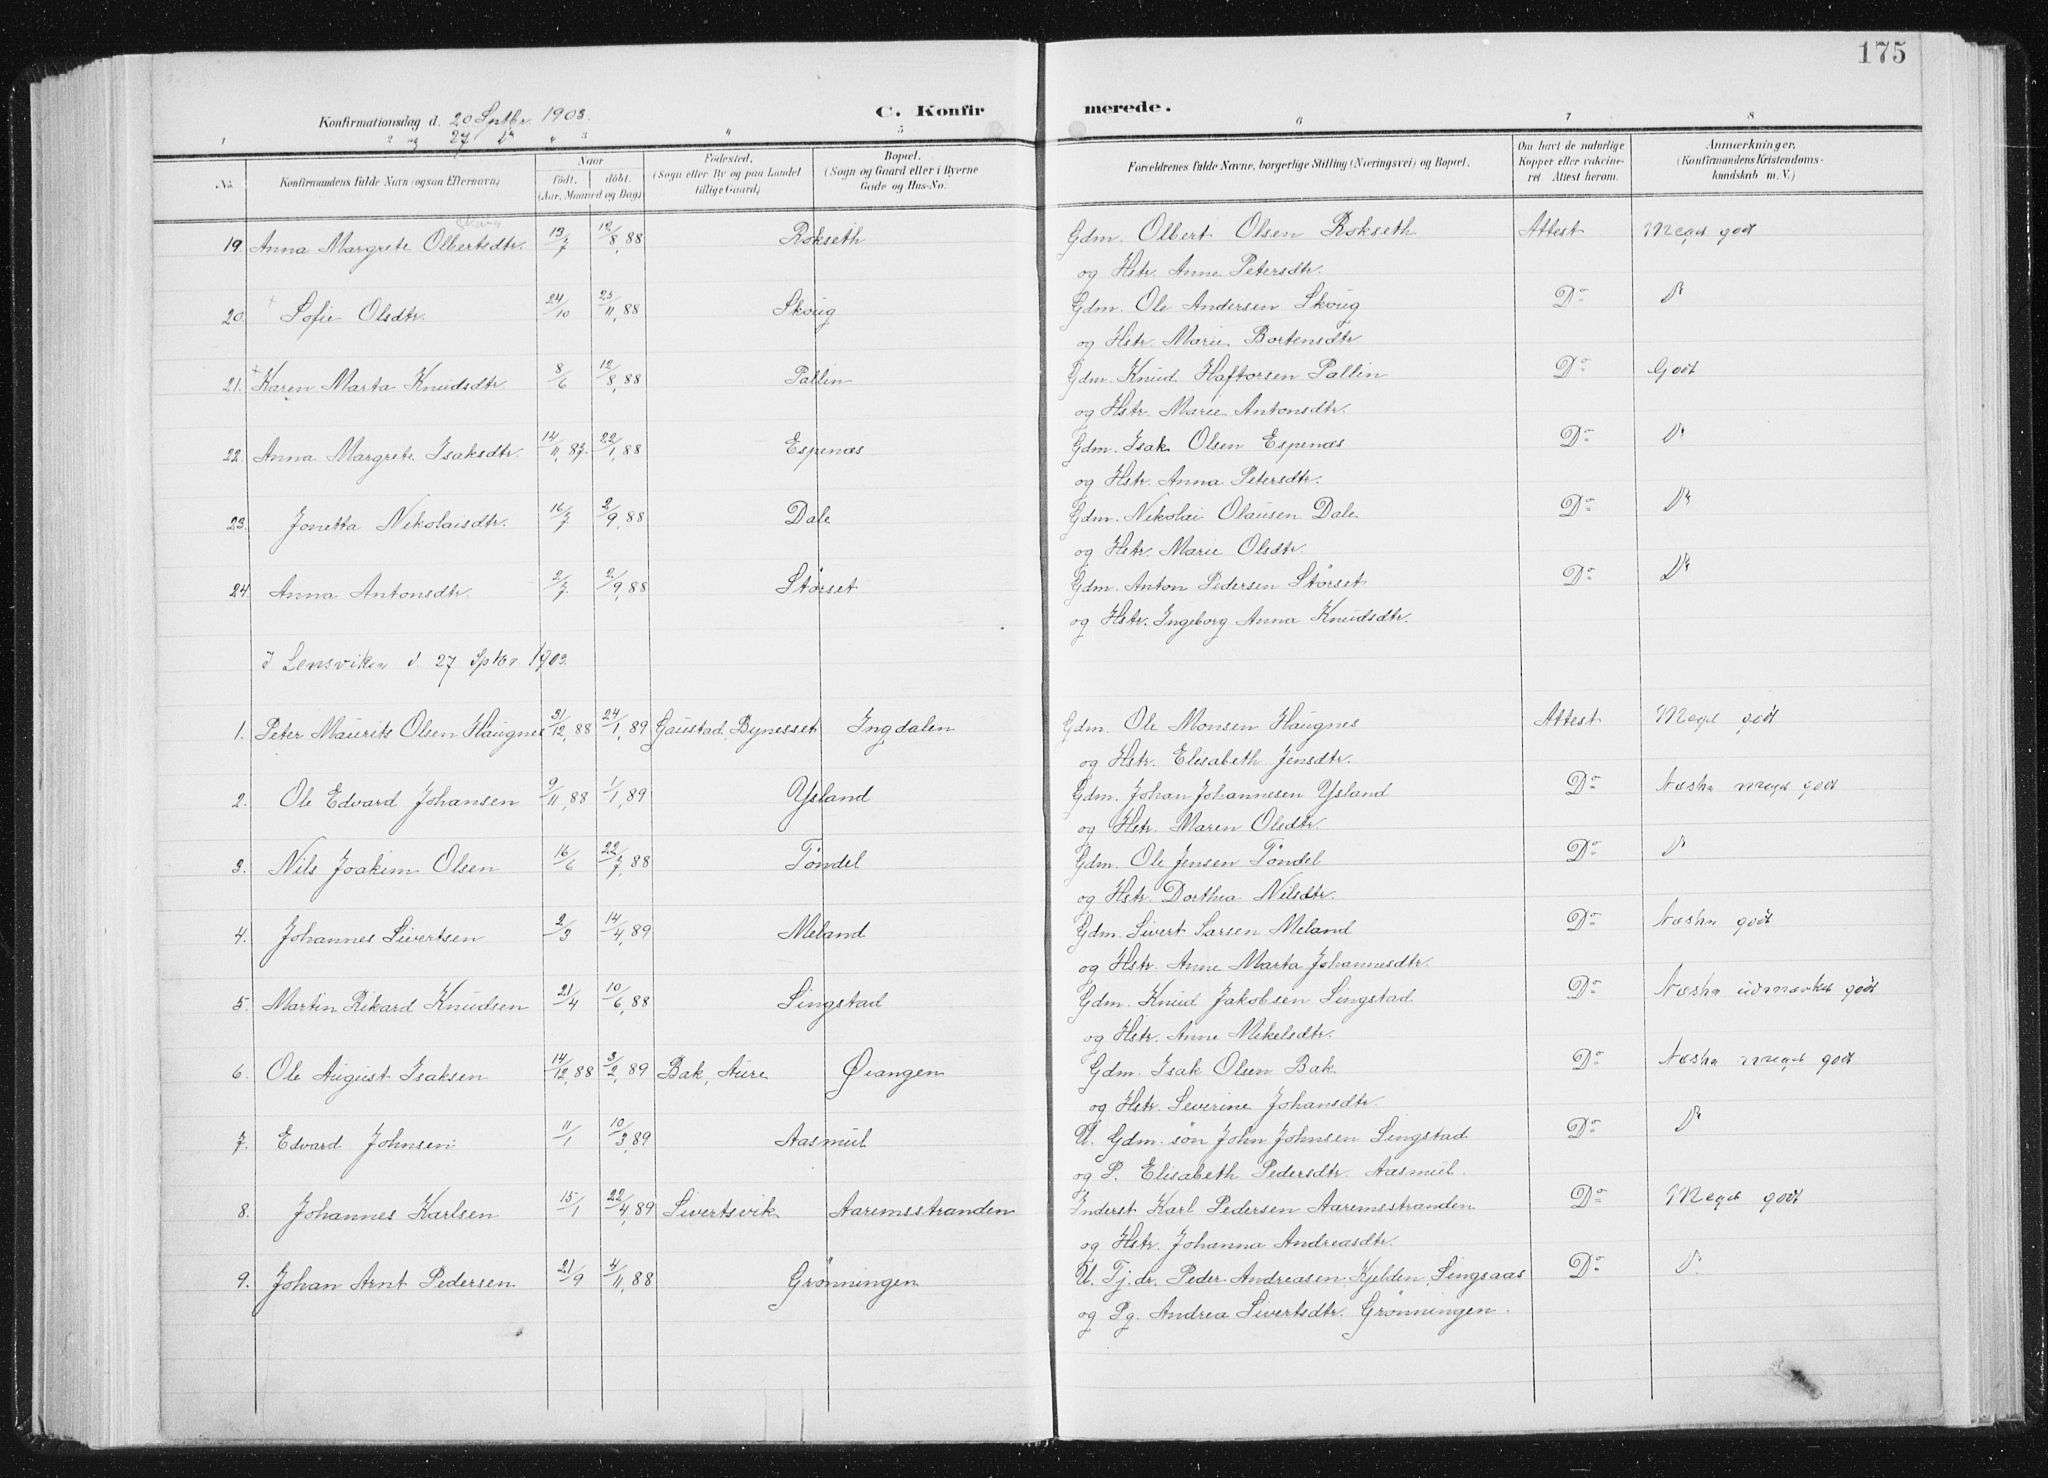 175
Konfirmationsdag d. 20 Septbr. 1903. C. Konfirmerede.
og 27 Do "
1 2 3 4 5 6 7 8
No. Konfirmandens fulde Navn (ogsaa Efternavn). Naar födt. döbt. (Aar, Maaned og Dag) Födested. (Sogn eller By og paa Landet tillige Gaard) Bopæl. (Sogn og Gaard eller i Byerne Gade og Hus-No. Forældrenes fulde Navne, borgerlige Stilling (Næringsvei) og Bopæl. Om havt de naturlige Kopper eller vaccineret Attest herom. Anmærkninger. (Konfirmandens Kristendomskundskab m. V.)
19. Anna Margrete Olbertsdtr. 13/7 12/8, 88 Rokseth Gdm. Olbert Olsen Rokseth Attest Meget godt
og Hstr. Anne Petersdtr.
20. Sofie Olsdtr. 24/10 25/11, 88 Skoug Gdm. Ole Andersen Skoug Do Do
og Hstr. Marie Bortensdtr.
21. Karen Marta Knudsdtr 8/6 12/8, 88 Pallin Gdm. Knud Haftorsen Pallin Do Godt
og Hstr. Marie Antonsdtr.
22. Anna Margrete Isaksdtr. 14/11, 87. 22/1, 88 Espenæs Gdm. Isak Olsen Espenæs Do Do
og Hstr. Anna Petersdtr.
23. Jonetta Nikolaisdtr. 16/7 2/9, 88 Dale Gdm. Nikolai Olausen Dale Do Do
og Hstr. Marie Olsdtr.
24 Anna Antonsdtr. 2/7 2/9, 88 Størset Gdm. Anton Pedersen Størset Do Do
og Hstr. Ingeborg Anna Knudsdtr.
I Lensviken d. 27 Sptbr. 1903.
1. Peter Maurits Olsen Haugnes 31/12, 88 24/1, 89 Gaustad, Bynesset Ingdalen Gdm. Ole Monsen Haugnes Attest Meget godt
og Hstr. Elisabeth Jensdtr.
2. Ole Edvard Johansen 9/11, 88 1/1, 89 Ysland Gdm. Johan Johannesen Ysland Do Næsten meget godt
og Hstr. Maren Olsdtr.
3. Nils Joakim Olsen 16/6 22/7, 88 Tøndel Gdm. Ole Jensen Tøndel Do Do
og Hstr. Dorthea Nilsdtr.
4. Johannes Sivertsen 2/3 14/4, 89 Meland Gdm. Sivert Larsen Meland Do Næsten godt
og Hstr. Anne Marta Johannesdtr.
5. Martin Rikard Knudsen 21/4 10/6, 88 Singstad Gdm. Knud Jakobsen Singstad Do Næsten udmærket godt
og Hstr. Anne Mikelsdtr.
6. Ole August Isaksen 14/12, 88 3/2, 89 Bak, Aure Øiangen Gdm. Isak Olsen Bak Do Næsten meget godt
og Hstr. Severine Johansdtr.
7. Edvard Johnsen 11/1 10/3, 89 Aasmul U. Gdm. søn John Johnsen Singstad Do Do
og P. Elisabeth Pedersdtr. Aasmul.
8. Johannes Karlsen 15/1 22/4, 89 Sivertsvik Aaremsstranden Inderst Karl Pedersen Aaremsstranden Do Meget godt
og Hstr. Johanna Andreasdtr.
9. Johan Arnt Pedersen 21/9 4/11, 88 Grønningen U. Tj.dr. Peder Andreasen Kjelden, Singsaas Do Do
og Pg. Andrea Sivertsdtr. Grønningen.